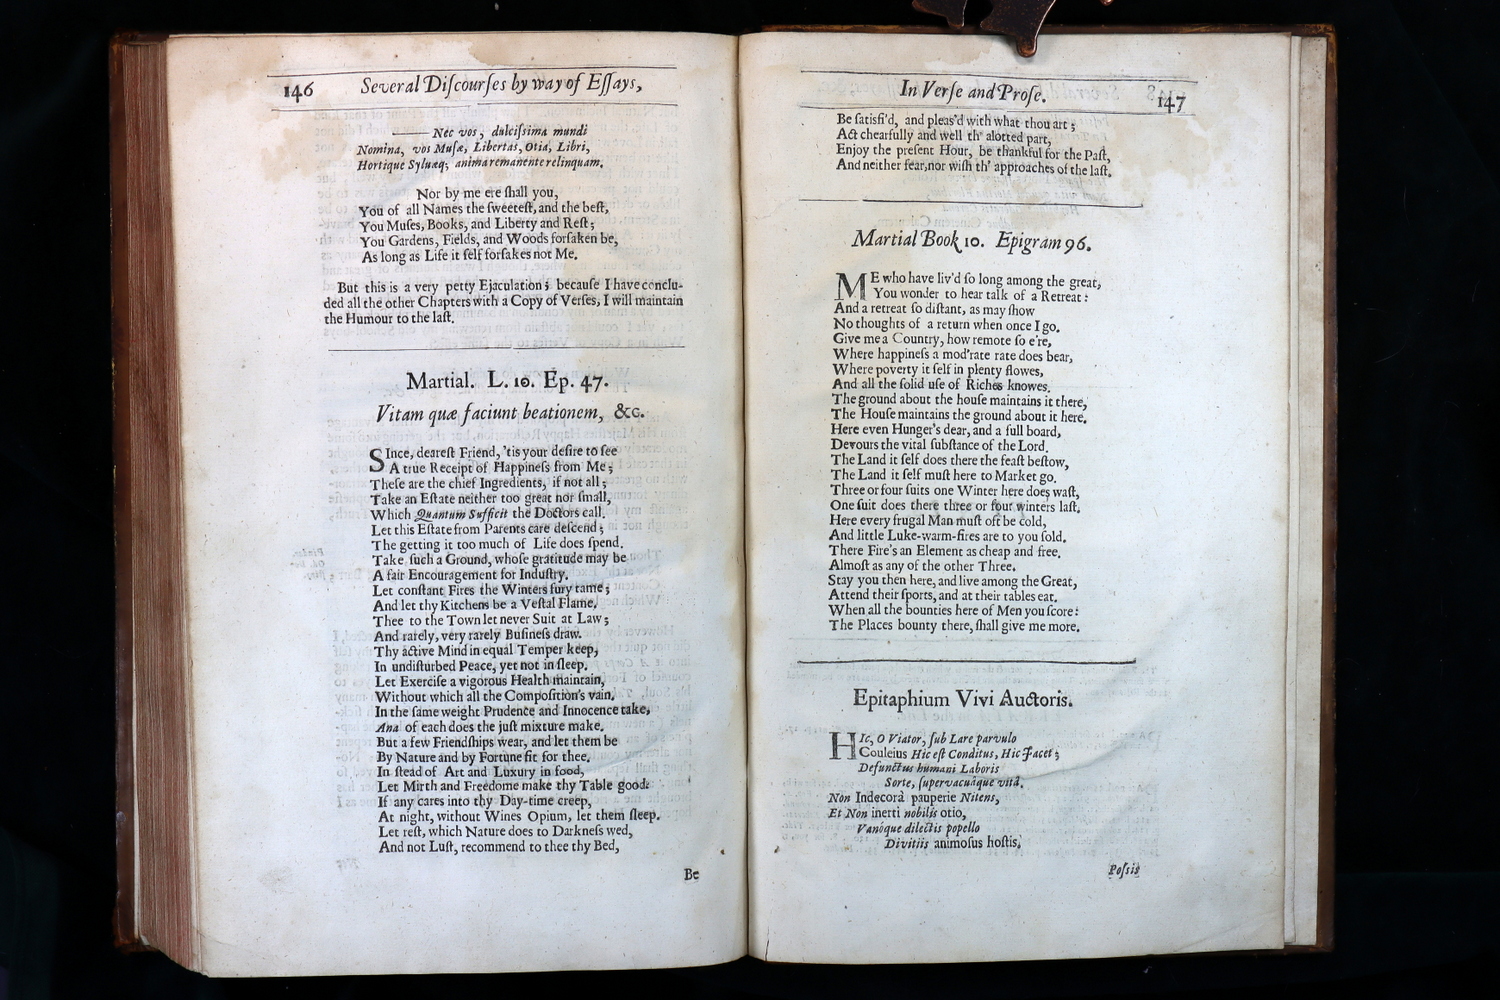 146 Several Diſcourſes by way of Eſſays,
—— Nec vos, dulciſsima mundi
Nomina, vos Muſæ, Libertas, Otia, Libri,
Hortique Sylvæq; anima remanente relinquam.
Nor by me ere ſhall you,
You of all Names the ſweeteſt, and the beſt,
You Muſes, Books, and Liberty and Reſt;
You Gardens, Fields, and Woods forſaken be,
As long as Life it ſelf forſakes not Me.
But this is a very petty Ejaculation; becauſe I have conclu-
ded all the other Chapters with a Copy of Verſes, I will maintain
the Humour to the laſt.
Martial. L. 10. Ep. 47.
Vitam quæ faciunt beationem, &c.
SInce, deareſt Friend, 'tis your deſire to ſee
A true Receipt of Happineſs from Me;
Theſe are the chief Ingredients, if not all;
Take an Eſtate neither too great nor ſmall,
Which Quantum Sufficit the Doctors call.
Let this Eſtate from Parents care deſcend;
The getting it too much of Life does ſpend.
Take ſuch a Ground, whoſe gratitude may be
A fair Encouragement for Induſtry.
Let conſtant Fires the Winters fury tame;
And let thy Kitchens be a Veſtal Flame.
Thee to the Town let never Suit at Law;
And rarely, very rarely Buſineſs draw.
Thy active Mind in equal Temper keep,
In undiſturbed Peace, yet not in ſleep.
Let Exerciſe a vigorous Health maintain,
Without which all the Compoſition's vain.
In the ſame weight Prudence and Innocence take,
Ana of each does the juſt mixture make.
But a few Friendſhips wear, and let them be
By Nature and by Fortune fit for thee.
In ſtead of Art and Luxury in food,
Let Mirth and Freedome make thy Table good.
If any cares into thy Day-time creep,
At night, without Wines Opium, let them ſleep.
Let reſt, which Nature does to Darkneſs wed,
And not Luſt, recommend to thee thy Bed,
Be
In Verſe and Proſe. 147
Be ſatisfi'd, and pleas'd with what thou art;
Act chearfully and well th' alotted part,
Enjoy the preſent Hour, be thankful for the Paſt,
And neither fear, nor wiſh th' approaches of the laſt.
Martial Book 10. Epigram 96.
ME who have liv'd ſo long among the great,
You wonder to hear talk of a Retreat:
And a retreat ſo diſtant, as may ſhow
No thoughts of a return when once I go.
Give me a Country, how remote ſo e're,
Where happineſs a mod'rate rate does bear,
Where poverty it ſelf in plenty flowes,
And all the ſolid uſe of Riches knowes.
The ground about the houſe maintains it there,
The Houſe maintains the ground about it here.
Here even Hunger's dear, and a full board,
Devours the vital ſubſtance of the Lord.
The Land it ſelf does there the feaſt beſtow,
The Land it ſelf muſt here to Market go.
Three or four ſuits one Winter here does waſt,
One ſuit does there three or four winters laſt.
Here every frugal Man muſt oft be cold,
And little Luke-warm-fires are to you ſold.
There Fire's an Element as cheap and free,
Almoſt as any of the other Three.
Stay you then here, and live among the Great,
Attend their ſports, and at their tables eat.
When all the bounties here of Men you ſcore:
The Places bounty there, ſhall give me more.
Epitaphium Vivi Auctoris.
HIc, O Viator, ſub Lare parvulo
Couleius Hic eſt Conditus, Hic Jacet;
Defunctus humani Laboris
Sorte, ſupervacuâque vitâ.
Non Indecorâ pauperie Nitens,
Et Non inerti nobilis otio,
Vanóque dilectis popello
Divitiis animoſus hoſtis.
Poſsis